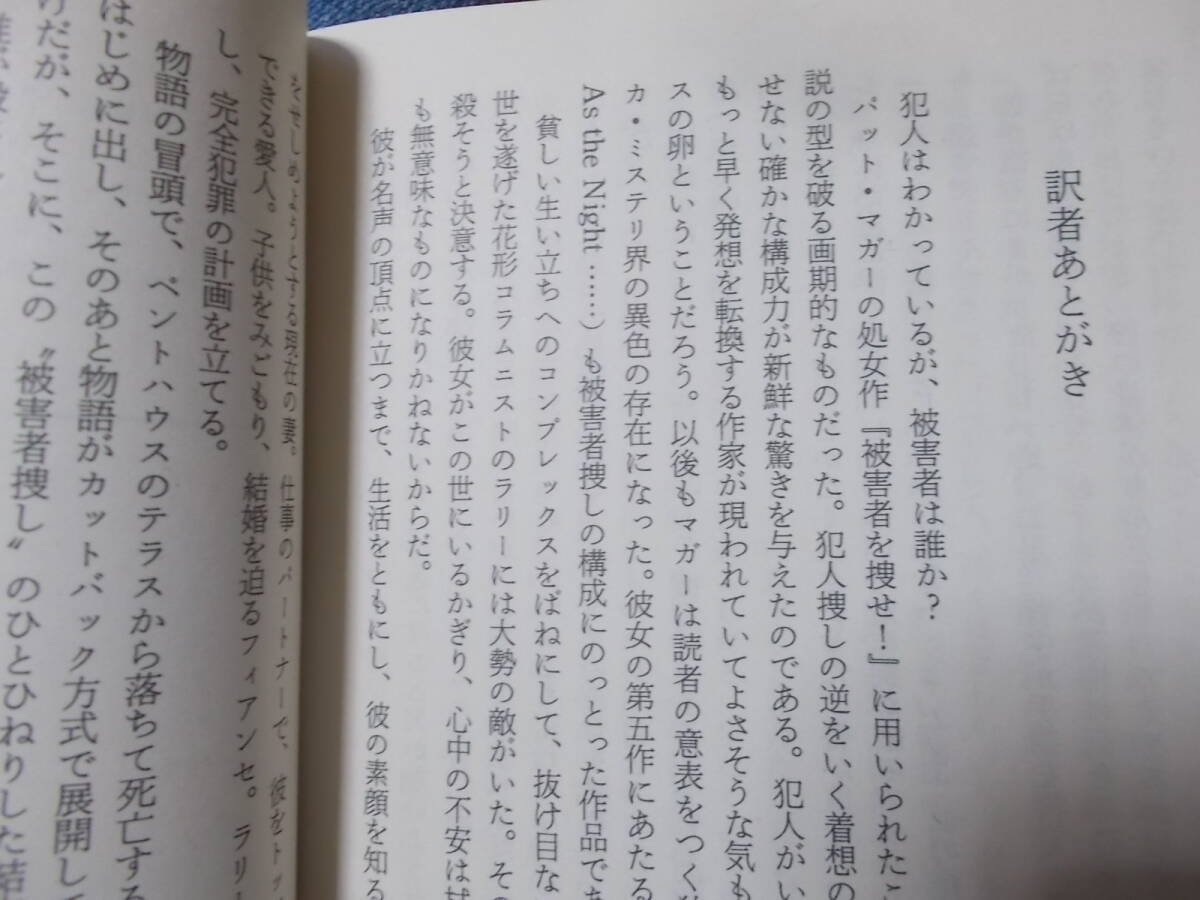 訳者あとがき
犯人はわかっているが、被害者は誰か?
パット・マガーの処女作『被害者を捜せ!』に用いられたこ
説の型を破る画期的なものだった。犯人捜しの逆をいく着想の
せない確かな構成力が新鮮な驚きを与えたのである。犯人がい
もっと早く発想を転換する作家が現われていてよさそうな気も
スの卵ということだろう。以後もマガーは読者の意表をつく
カ・ミステリ界の異色の存在になった。彼女の第五作にあたる
As the Night ……)も被害者捜しの構成にのっとった作品であ
貧しい生い立ちへのコンプレックスをばねにして、抜け目な
世を遂げた花形コラムニストのラリーには大勢の敵がいた。その
殺そうと決意する。彼女がこの世にいるかぎり、心中の不安は
も無意味なものになりかねないからだ。
彼が名声の頂点に立つまで、生活をともにし、彼の素顔を知る
をせしめようとする現在の妻。仕事のパートナーで、彼をトッ
できる愛人。子供をみごもり、結婚を迫るフィアンセ。ラリ
し、完全犯罪の計画を立てる。
物語の冒頭で、ペントハウスのテラスから落ちて死亡する
はじめに出し、そのあと物語がカットバック方式で展開して
けだが、そこに、この〝被害者捜し〟のひとひねりした結